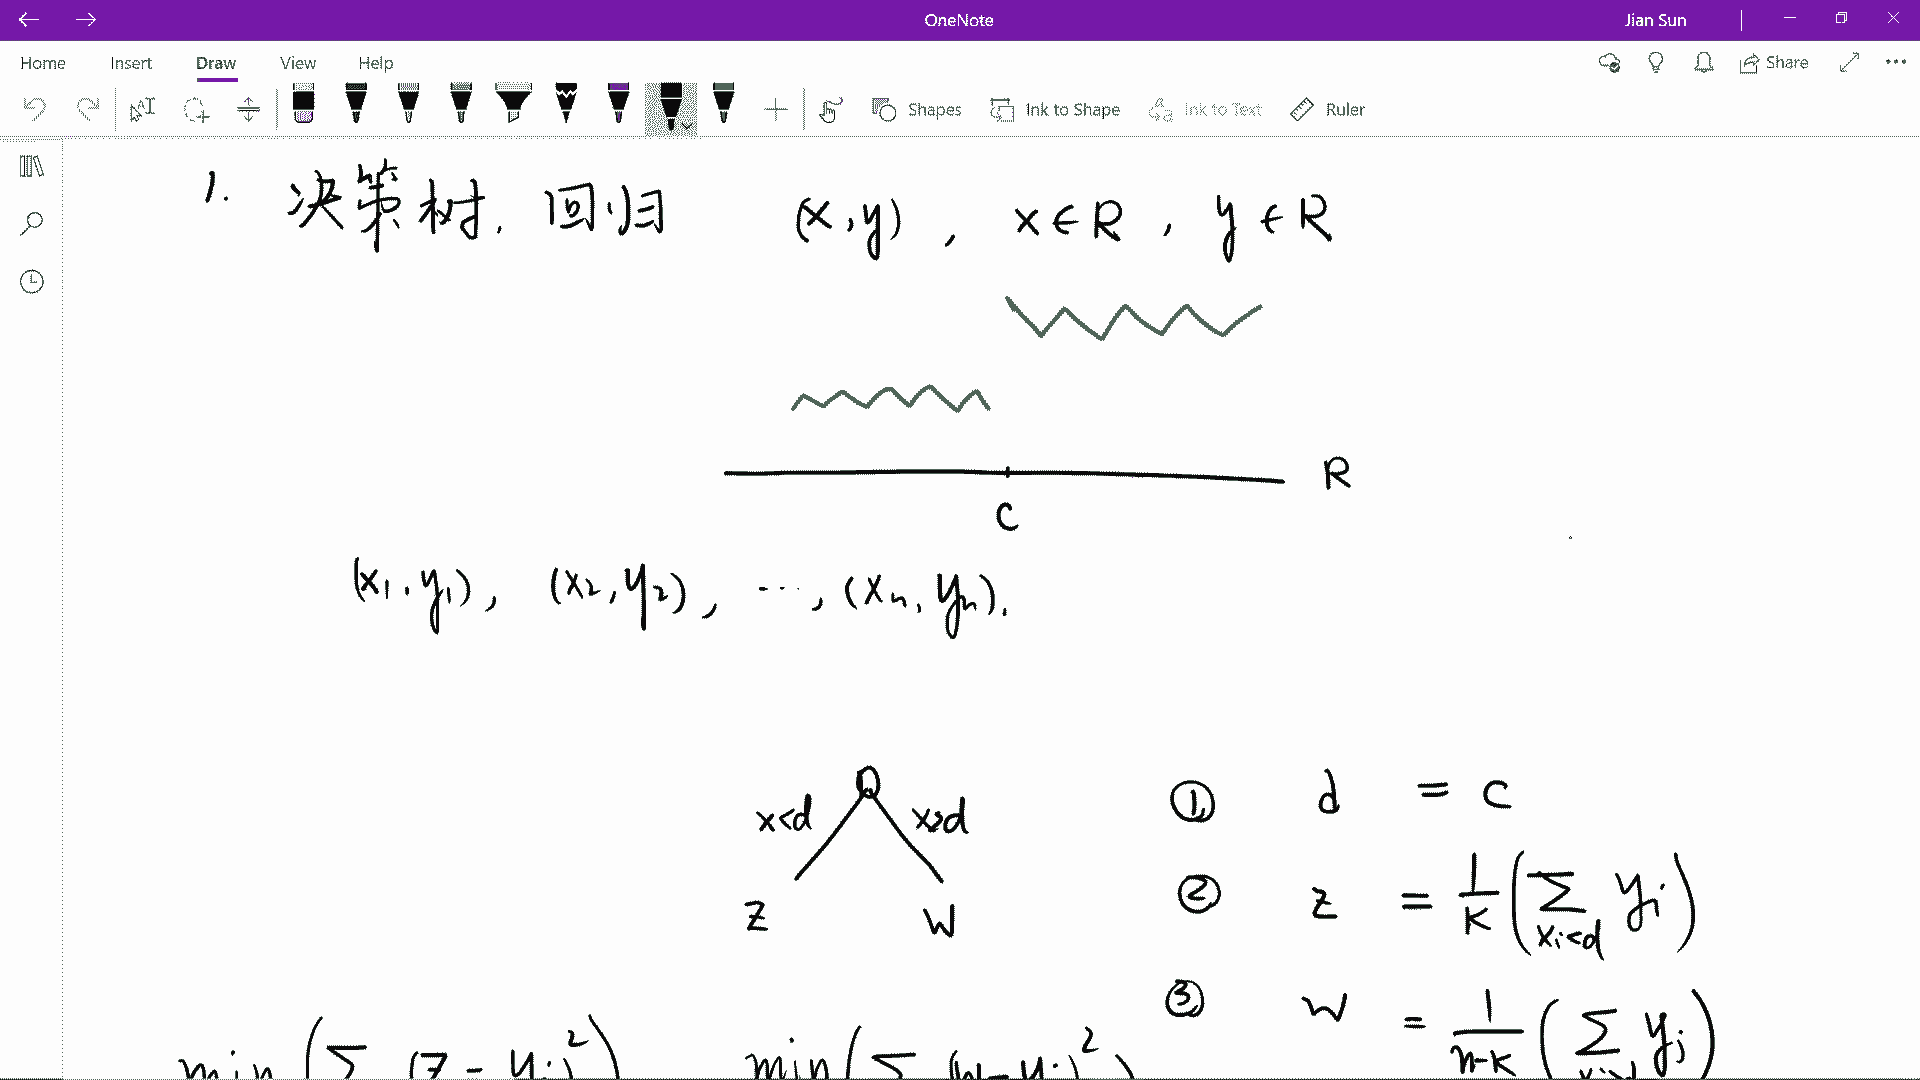 OneNote
Jian Sun
Home Insert Draw View Help
Share
Shapes Ink to Shape Ink to Text Ruler
1. 决策树. 回归 (x,y), x∈R, y∈R
R
C
(x1,y1), (x2,y2), ⋯, (xn,yn).
x<d x>d
z w
① d = c
② z = 1/K (∑_{xi<d} yi)
③ w = 1/(n-K) (∑ yj)
min(∑ (z-yi)^2) min(∑ (w-yj)^2)